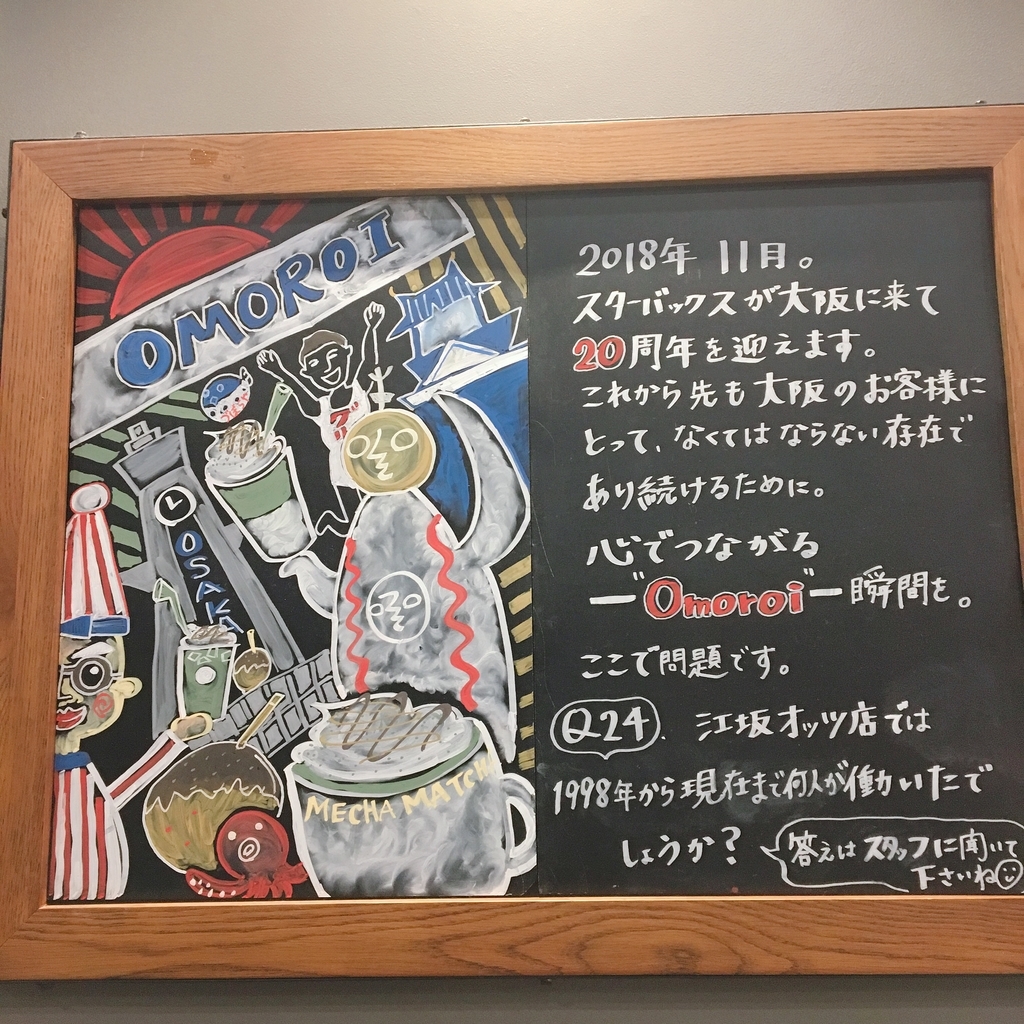 OMOROI
グリ
OSAKA
MECHA MATCH
2018年 11月。
スターバックスが大阪に来て
20周年を迎えます。
これから先も大阪のお客様に
とって、なくてはならない存在で
あり続けるために。
心でつながる
ー"Omoroi"ー瞬間を。
ここで問題です。
Q24. 江坂オッツ店では
1998年から現在まで何人が働いたで
しょうか?
答えはスタッフに聞いて
下さいね